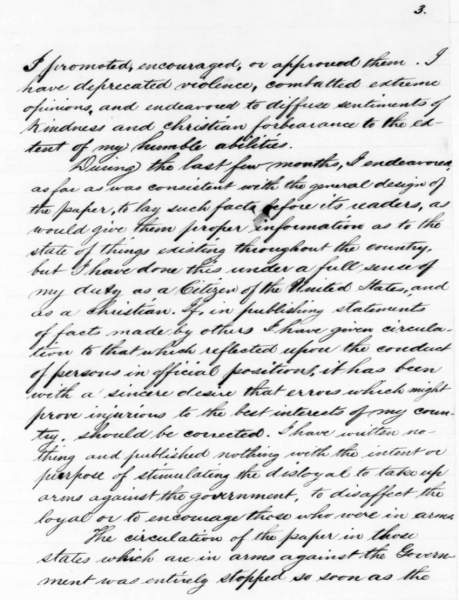 3.
I promoted, encouraged, or approved them. I
have deprecated violence, combatted extreme
opinions, and endeavored to diffuse sentiments of
kindness and christian forbearance to the ex-
tent of my humble abilities.
During the last few months, I endeavored,
as far as was consistent with the general design of
the paper, to lay such facts before its readers, as
would give them proper information as to the
state of things existing throughout the country.
but I have done this under a full sense of
my duty as a Citizen of the United States, and
as a christian. If, in publishing statements
of facts made by others I have given circula-
tion to that which reflected upon the conduct
of persons in official position, it has been
with a sincere desire that errors which might
prove injurious to the best interests of my coun-
try, should be corrected. I have written no-
thing and published nothing with the intent or
purpose of stimulating the disloyal to take up
arms against the government, to disaffect the
loyal or to encourage those who were in arms.
The circulation of the paper in those
states which are in arms against the Govern-
ment was entirely stopped so soon as the